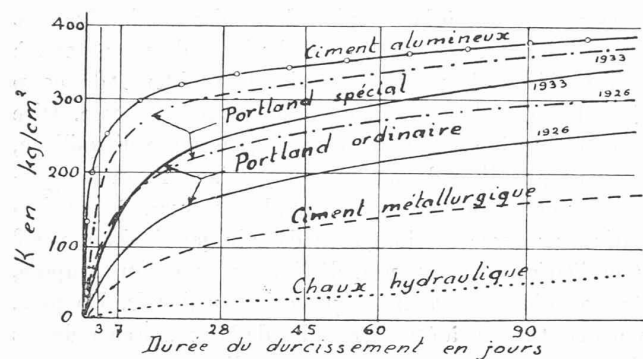 K en kg/cm²
400
300
200
100
0
Ciment alumineux
1933
Portland spécial
1933
1926
Portland ordinaire
1926
Ciment métallurgique
Chaux hydraulique
3 7 28 45 60 90
Durée du durcissement en jours